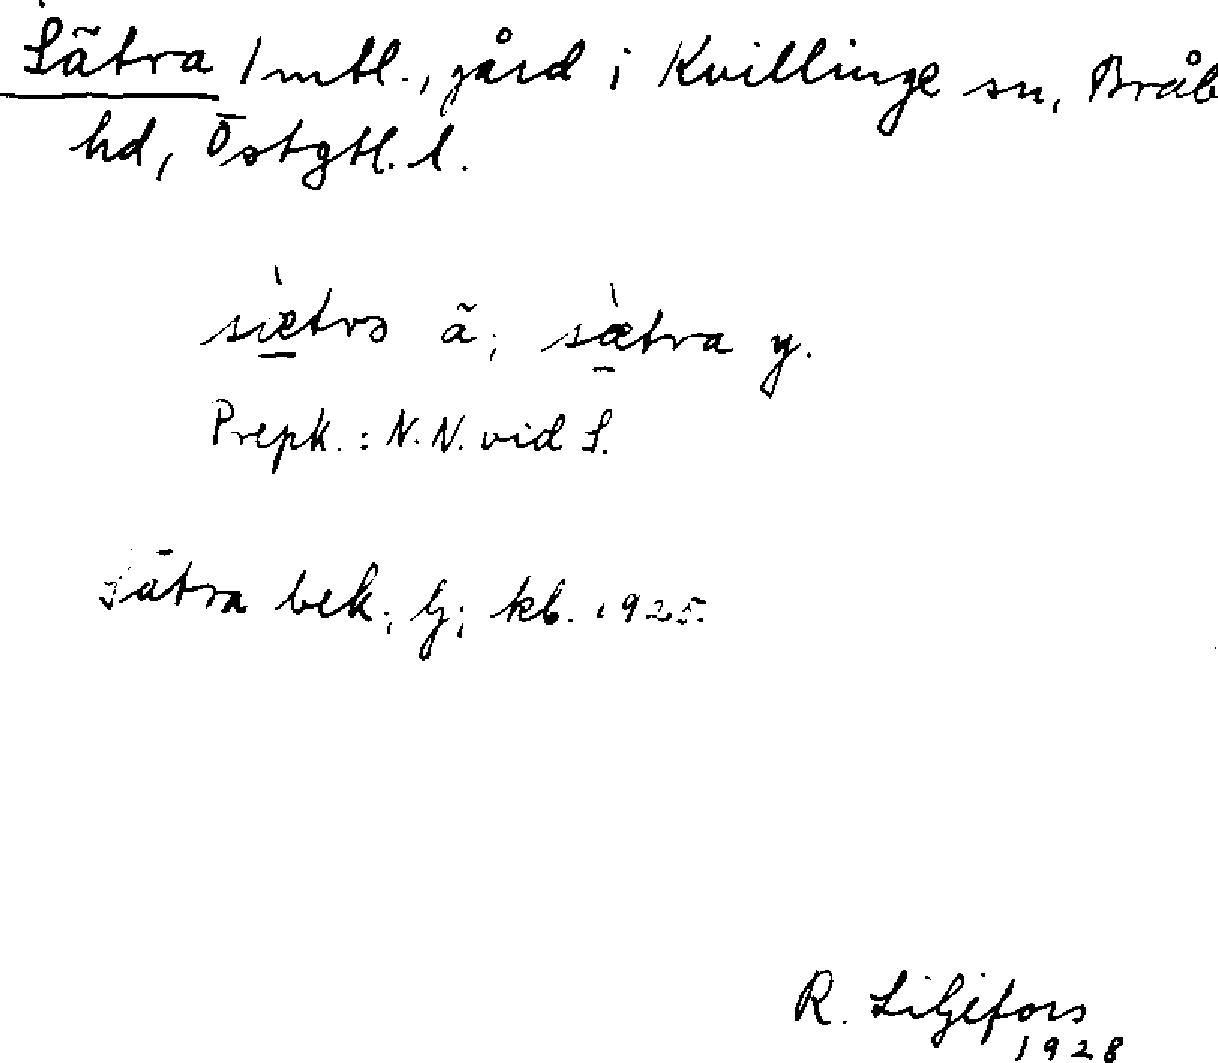 Sätra 1 mtl., gård i Kvillinge sn, Bråb
hd, Östgtl. l.
sæ̀trɔ ä; sæ̀tra y.
Prepk.: N.N. vid S.
Sätra bek; lj; kb. 1925.
R. Liljefors
1928